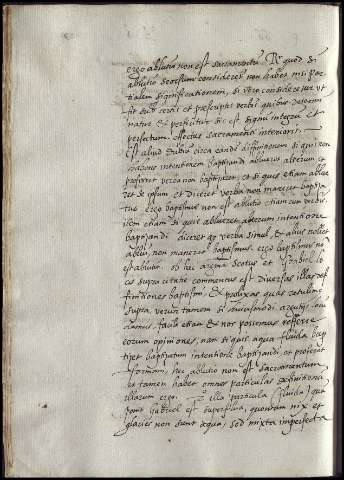 ergo ablutio non est sacramentum R. quod si
ablutio seorsum consideres non habet nisi par
tialem significationem, si vero consideretur ut
fit sub certis et prescriptis verbis quibus determi
natur et perficitur sic est signum integrum et
perfectum effectus sacramenti interioris.
Est aliud dubium circa eandem diffinitionem si qui non
habens intentionem baptizandi ablueret alterum et
proferret verba non baptizaret et si quis etiam ablue
ret se ipsum et diceret verba non maneret baptiza
tus ergo baptismus non est ablutio etiam cum verbis.
item etiam si quis ablueret alterum intentione
baptizandi diceret verba simul et alius
ablueret, non maneret baptismus. ergo baptismus
ob hec argumenta Scotus et Gabriel
supra citatis commenti est diversas illas dif
finitiones baptismi et prolixas quas retulimus
supra, verum tamen si
facile etiam et nos possumus refferre
eorum opiniones, nam si quis aqua fluida bap
tizet baptizatum intentione baptizandi, et proferat
formam, hec ablutio non est sacramentum
et tamen habet omnes particulas definitionis
illarum ergo. illa particula (fluida) quam
ponit Gabriel est superflua, quoniam nix et
glacies non sunt aqua, sed mixta imperfecta